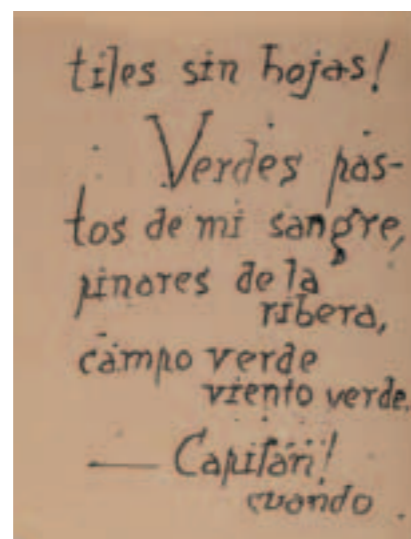 tiles sin hojas!
Verdes pas-
tos de mi sangre,
pinares de la
ribera,
campo verde
viento verde.
— Capitán!
cuando